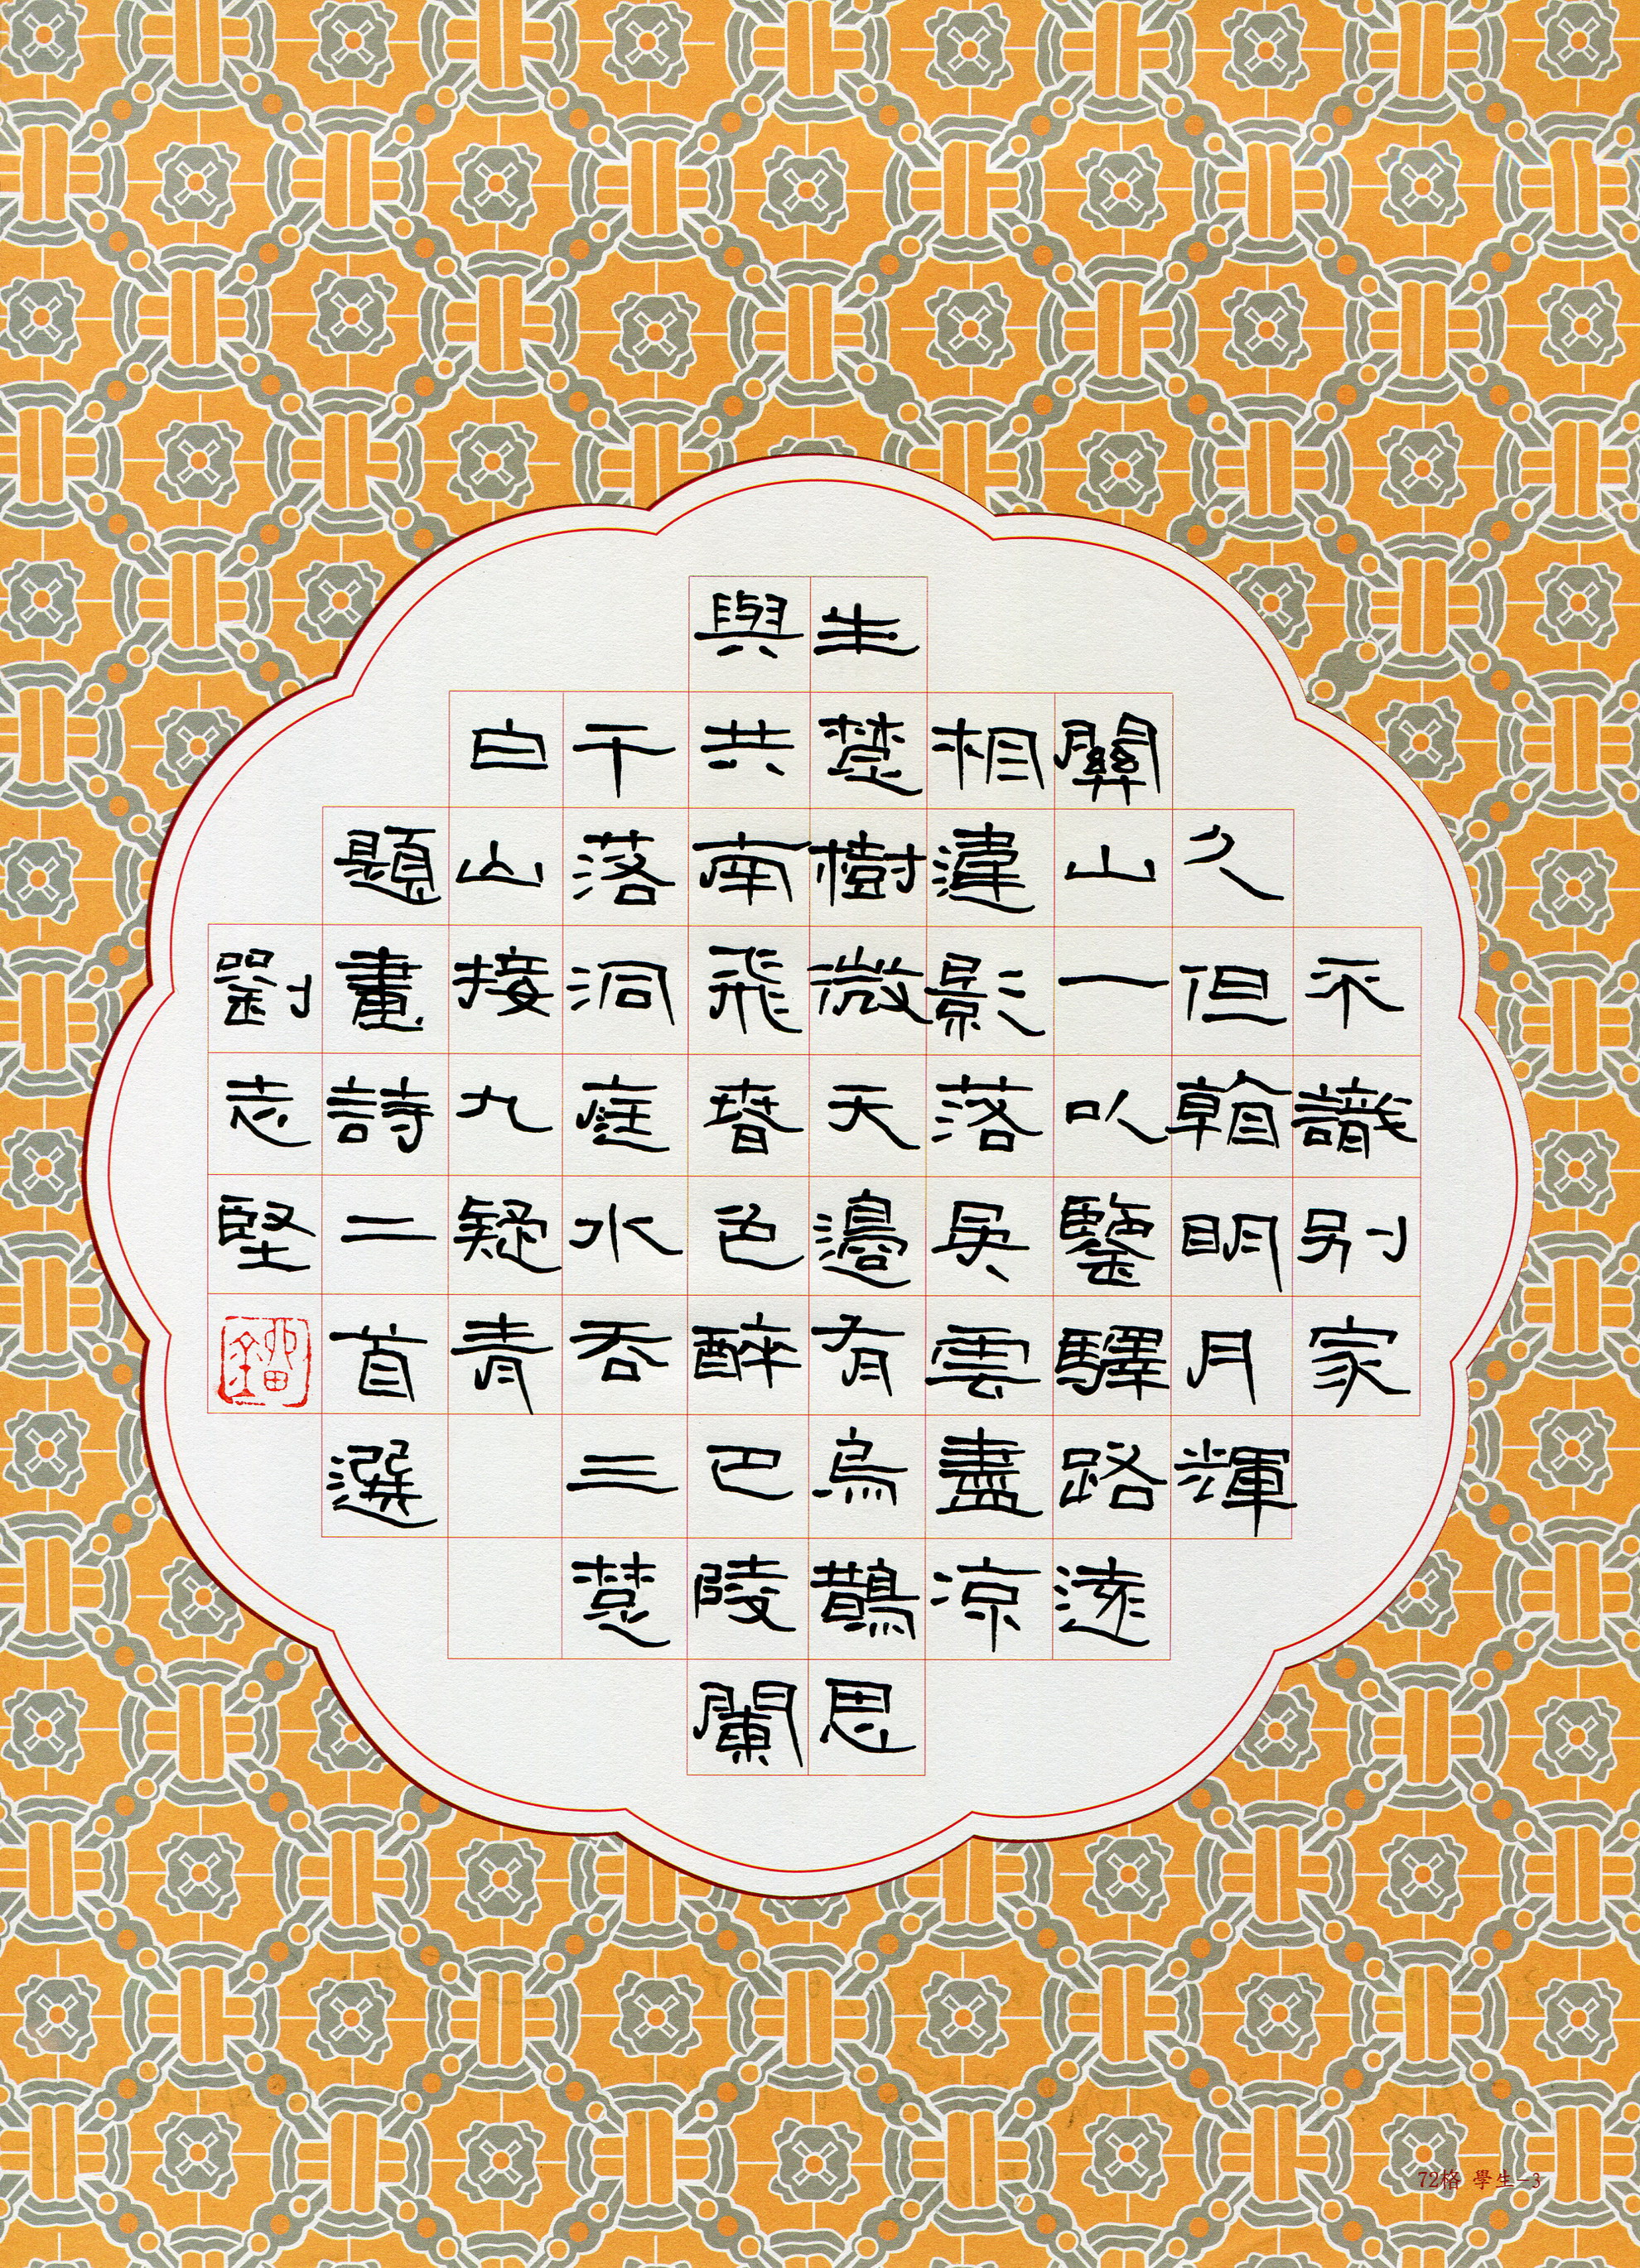 不識別家
久但看明月輝
關山一以鑒驛路遠
相違影落吳雲盡涼
生楚樹微天邊有烏鵲思
與共南飛春色醉巴陵闌
干落洞庭水吞三楚
白山接九疑青
題畫詩二首選
劉志堅
72格 學生-3